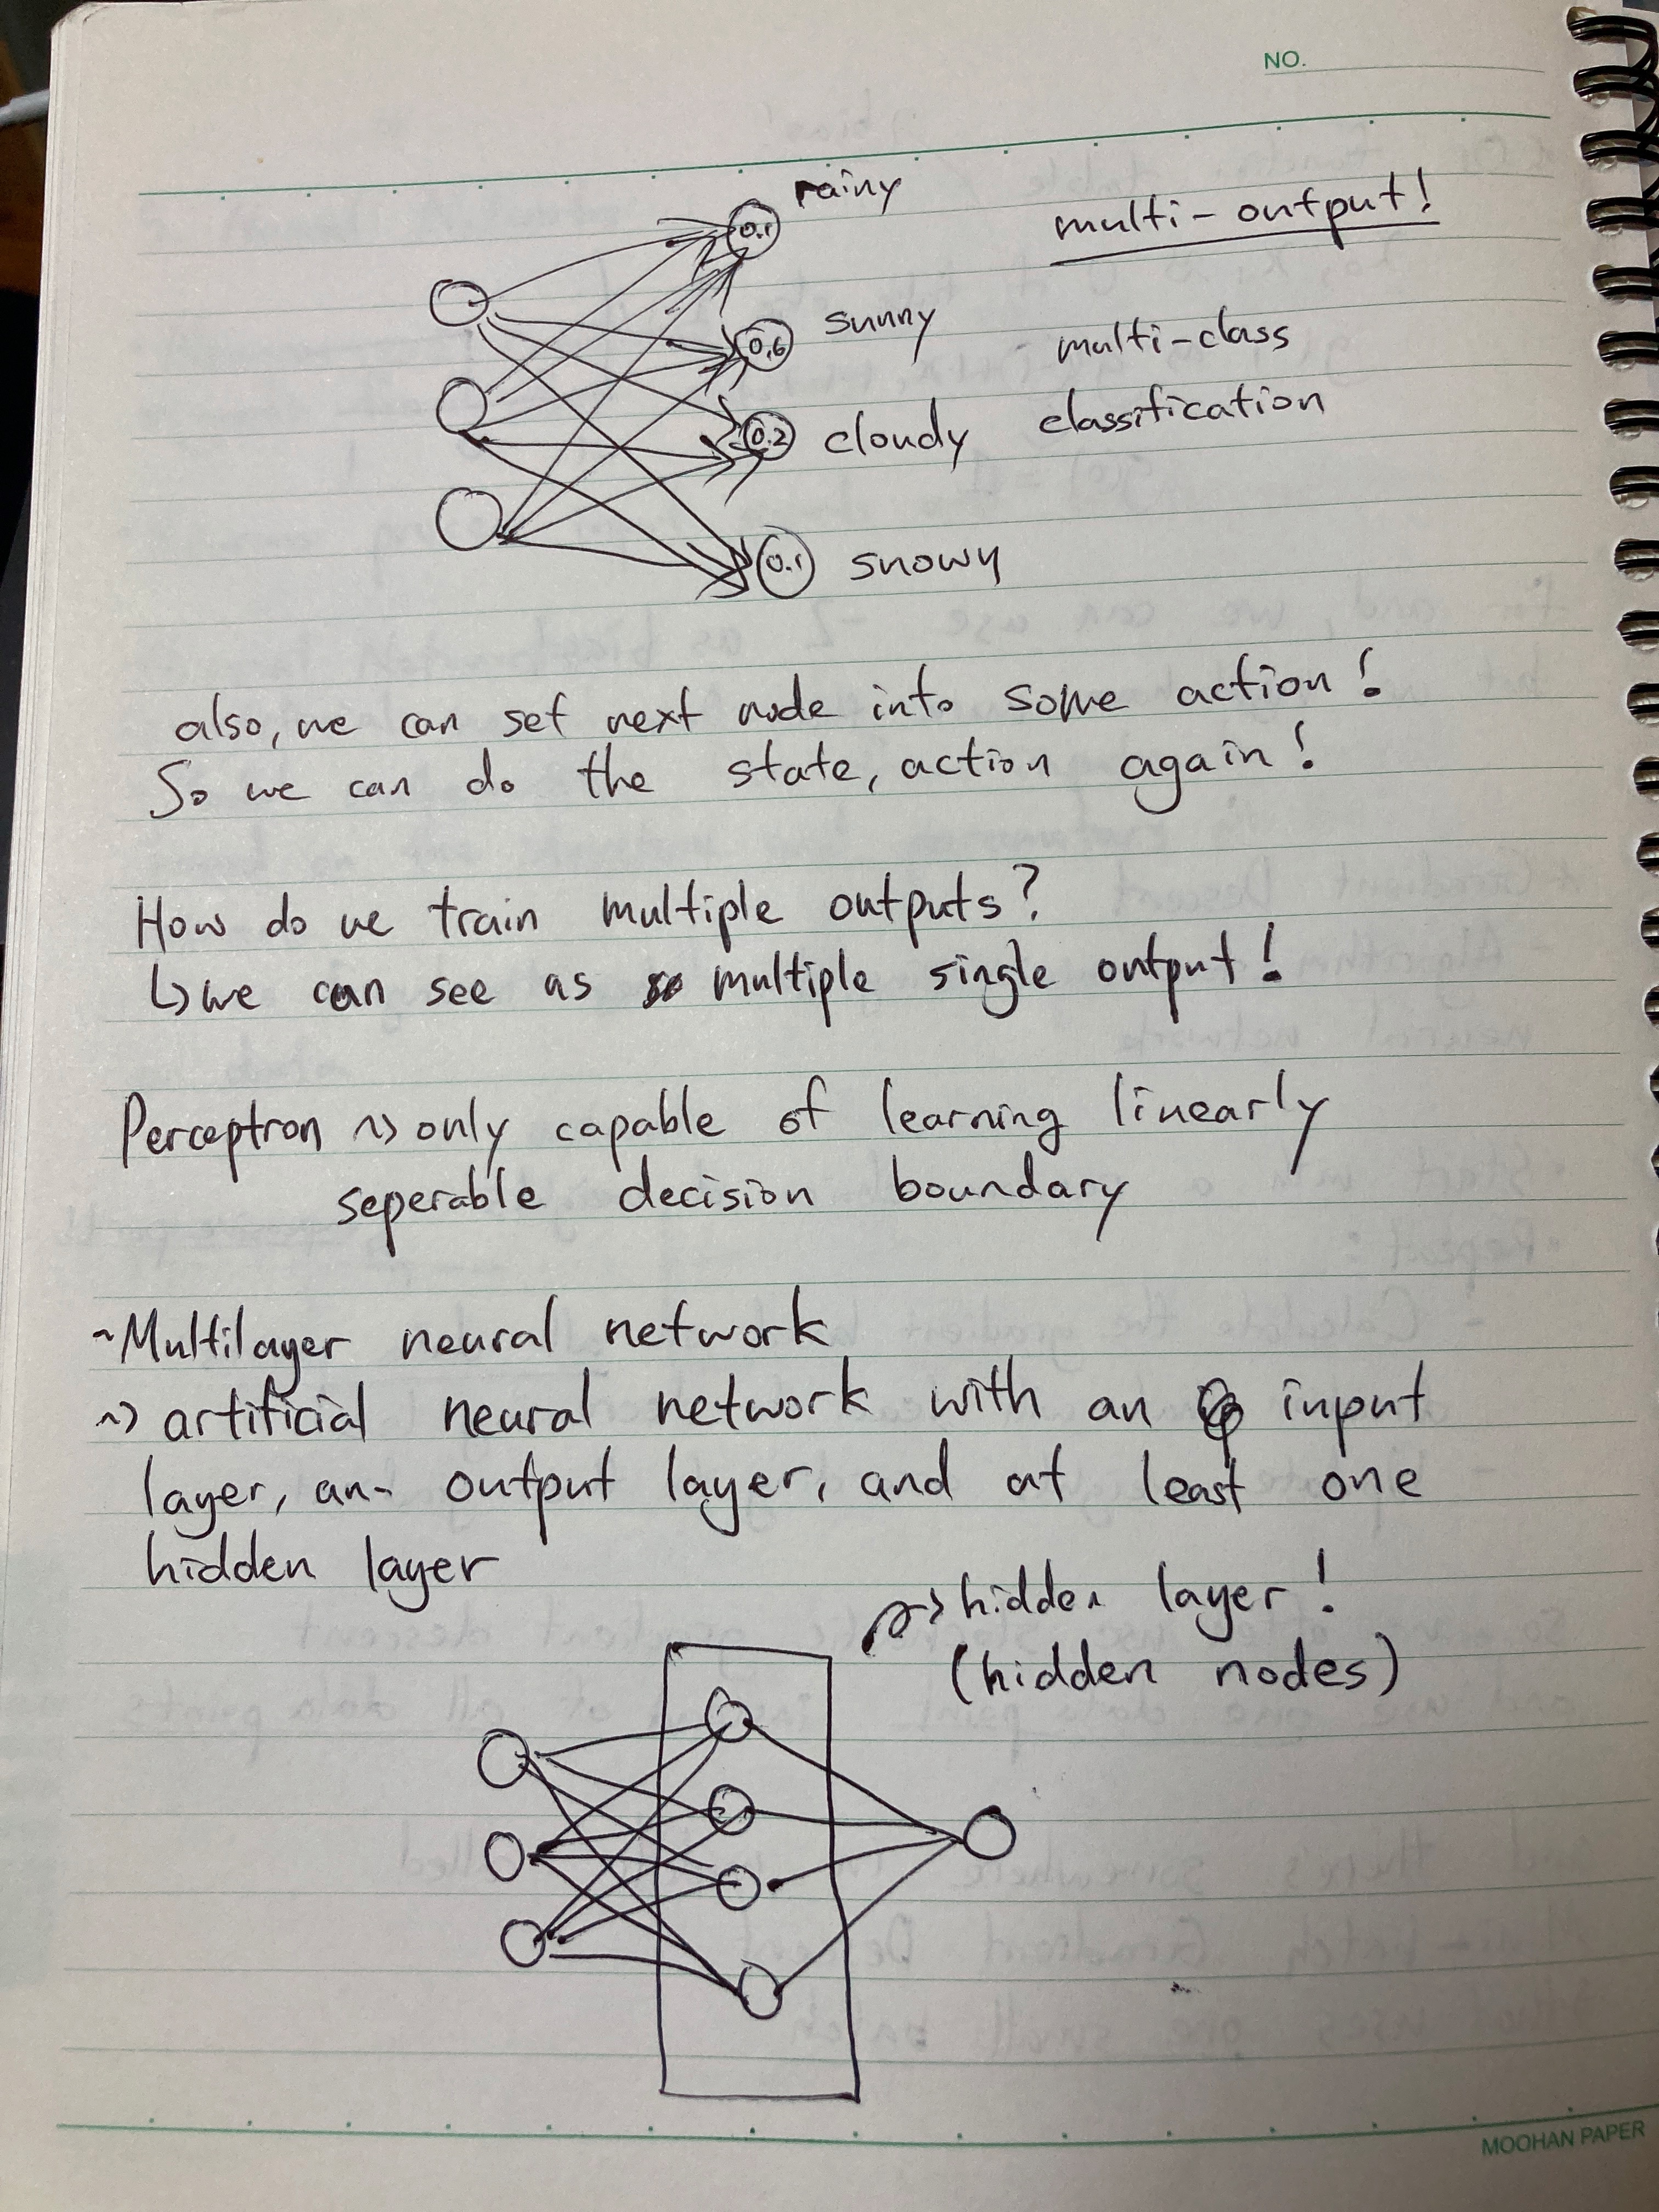 NO.
rainy
multi-output!
0.1
sunny
0.6
multi-class
classification
0.2
cloudy
0.1
snowy
also, we can set next node into some action!
So we can do the state, action again!
How do we train multiple outputs?
↳we can see as multiple single output!
Perceptron ~> only capable of learning linearly
seperable decision boundary
~Multilayer neural network
~> artificial neural network with an input
layer, an output layer, and at least one
hidden layer
~> hidden layer!
(hidden nodes)
MOOHAN PAPER